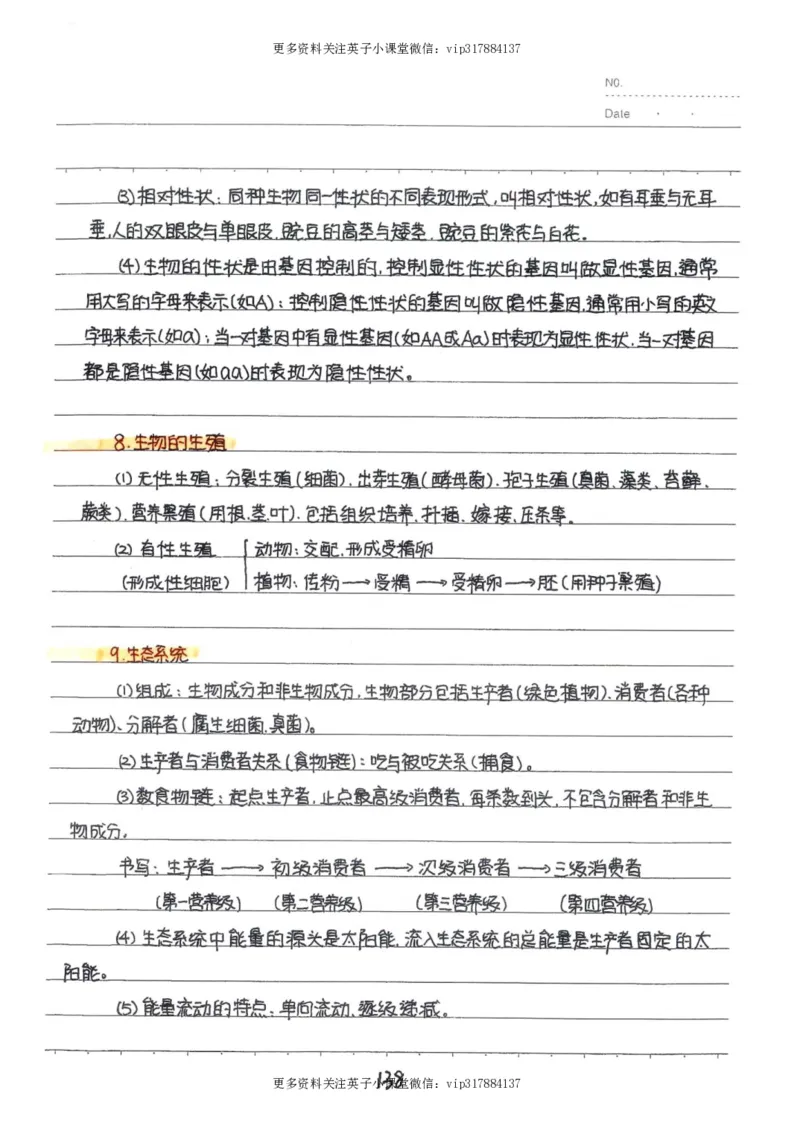 更多资料关注英子小课堂微信：vip317884137
NO.
Date
(3)相对性状：同种生物同一性状的不同表现形式，叫相对性状，如有耳垂与无耳
垂，人的双眼皮与单眼皮，豌豆的高茎与矮茎，豌豆的紫花与白花。
(4)生物的性状是由基因控制的，控制显性性状的基因叫做显性基因，通常
用大写的字母来表示(如A)；控制隐性性状的基因叫做隐性基因，通常用小写的英文
字母来表示(如a)；当一对基因中有显性基因(如AA或Aa)时表现为显性性状，当一对基因
都是隐性基因(如aa)时表现为隐性性状。
8.生物的生殖
(1)无性生殖：分裂生殖(细菌)，出芽生殖(酵母菌)，孢子生殖(真菌、藻类、苔藓、
蕨类)，营养繁殖(用根.茎.叶)，包括组织培养，扦插，嫁接，压条等。
(2)有性生殖 动物：交配，形成受精卵
(形成性细胞) 植物：传粉→受精→受精卵→胚(用种子繁殖)
9.生态系统
(1)组成：生物成分和非生物成分，生物部分包括生产者(绿色植物)、消费者(各种
动物)、分解者(腐生细菌，真菌)。
(2)生产者与消费者关系(食物链)：吃与被吃关系(捕食)。
(3)数食物链：起点生产者，止点最高级消费者，每条数到头，不包含分解者和非生
物成分。
书写：生产者→初级消费者→次级消费者→三级消费者
(第一营养级) (第二营养级) (第三营养级) (第四营养级)
(4)生态系统中能量的源头是太阳能，流入生态系统的总能量是生产者固定的太
阳能。
(5)能量流动的特点：单向流动，逐级递减。
138
更多资料关注英子小课堂微信：vip317884137